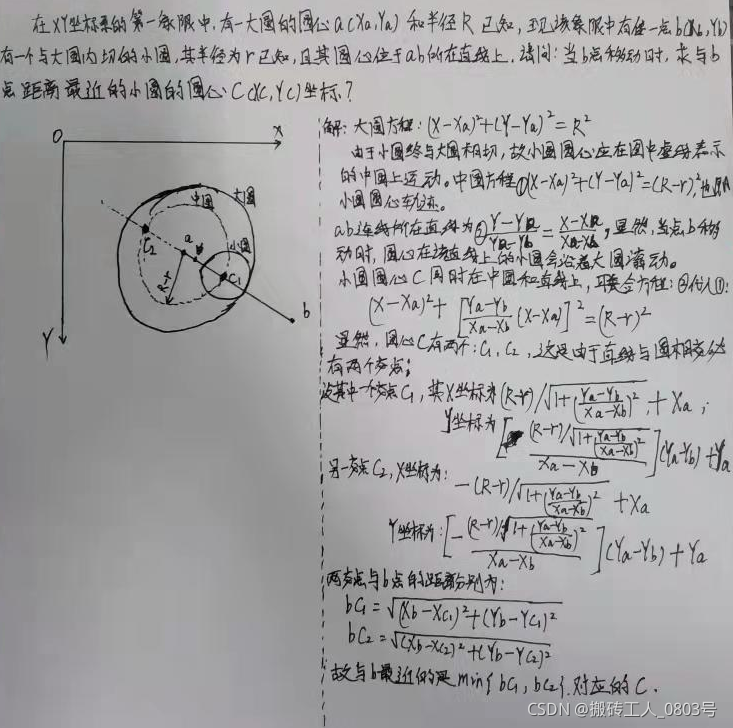 在XY坐标系的第一象限中,有一大圆的圆心a(Xa,Ya)和半径R已知,现该象限中有任一点b(Xb,Yb)
有一个与大圆内切的小圆,其半径为r已知,且其圆心位于ab的在直线上,请问:当b点移动时,求与b
点距离最近的小圆的圆心C(Xc,Yc)坐标?
O
X
Y
大圆
中圆
小圆
C2
a
R-r
C1
b
解:大圆方程:(X-Xa)²+(Y-Ya)²=R²
由于小圆终与大圆相切,故小圆圆心应在图中虚线表示
的中圆上运动。中圆方程①(X-Xa)²+(Y-Ya)²=(R-r)²,也
小圆圆心轨迹。
ab连线所在直线为②(Y-Ya)/(Ya-Yb)=(X-Xa)/(Xa-Xb),显然,当点b移
动时,圆心在该直线上的小圆会沿着大圆滚动。
小圆圆心C同时在中圆和直线上,联合方程:②代入①:
(X-Xa)²+[(Ya-Yb)/(Xa-Xb)(X-Xa)]²=(R-r)²
显然,圆心C有两个:C1,C2,这是由于直线与圆相交
有两个交点;
设其中一个交点C1,其X坐标为(R-r)/√(1+((Ya-Yb)/(Xa-Xb))²)+Xa;
Y坐标为[((R-r)/√(1+((Ya-Yb)/(Xa-Xb))²))/(Xa-Xb)](Ya-Yb)+Ya
另一交点C2,X坐标为:-(R-r)/√(1+((Ya-Yb)/(Xa-Xb))²)+Xa
Y坐标为:[-((R-r)/√(1+((Ya-Yb)/(Xa-Xb))²))/(Xa-Xb)](Ya-Yb)+Ya
两交点与b点的距离分别为:
bC1=√((Xb-XC1)²+(Yb-YC1)²)
bC2=√((Xb-XC2)²+(Yb-YC2)²)
故与b最近的是min{bC1,bC2}对应的C.
CSDN @搬砖工人_0803号